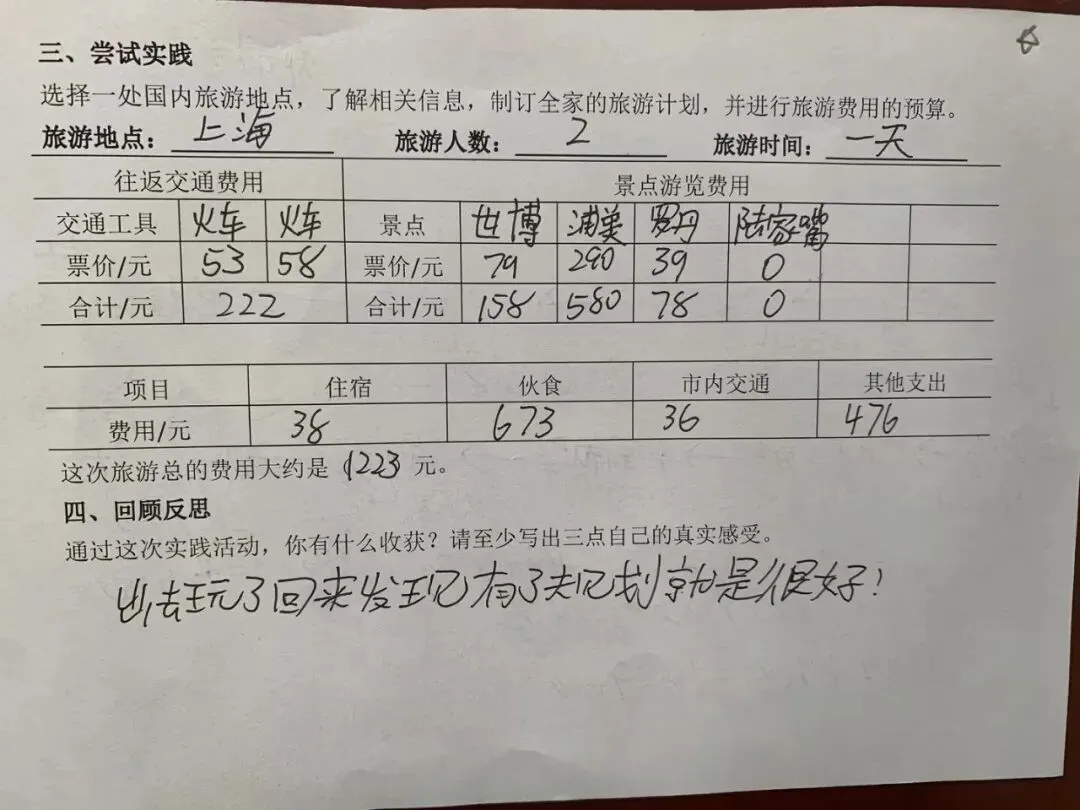 三、尝试实践
选择一处国内旅游地点，了解相关信息，制订全家的旅游计划，并进行旅游费用的预算。
旅游地点：上海 旅游人数：2 旅游时间：一天
往返交通费用 景点游览费用
交通工具 火车 火车 景点 世博 浦美 罗丹 陆家嘴
票价/元 53 58 票价/元 79 290 39 0
合计/元 222 合计/元 158 580 78 0
项目 住宿 伙食 市内交通 其他支出
费用/元 38 673 36 476
这次旅游总的费用大约是 1223 元。
四、回顾反思
通过这次实践活动，你有什么收获？请至少写出三点自己的真实感受。
出去玩了回来发现有了规划就是很好！